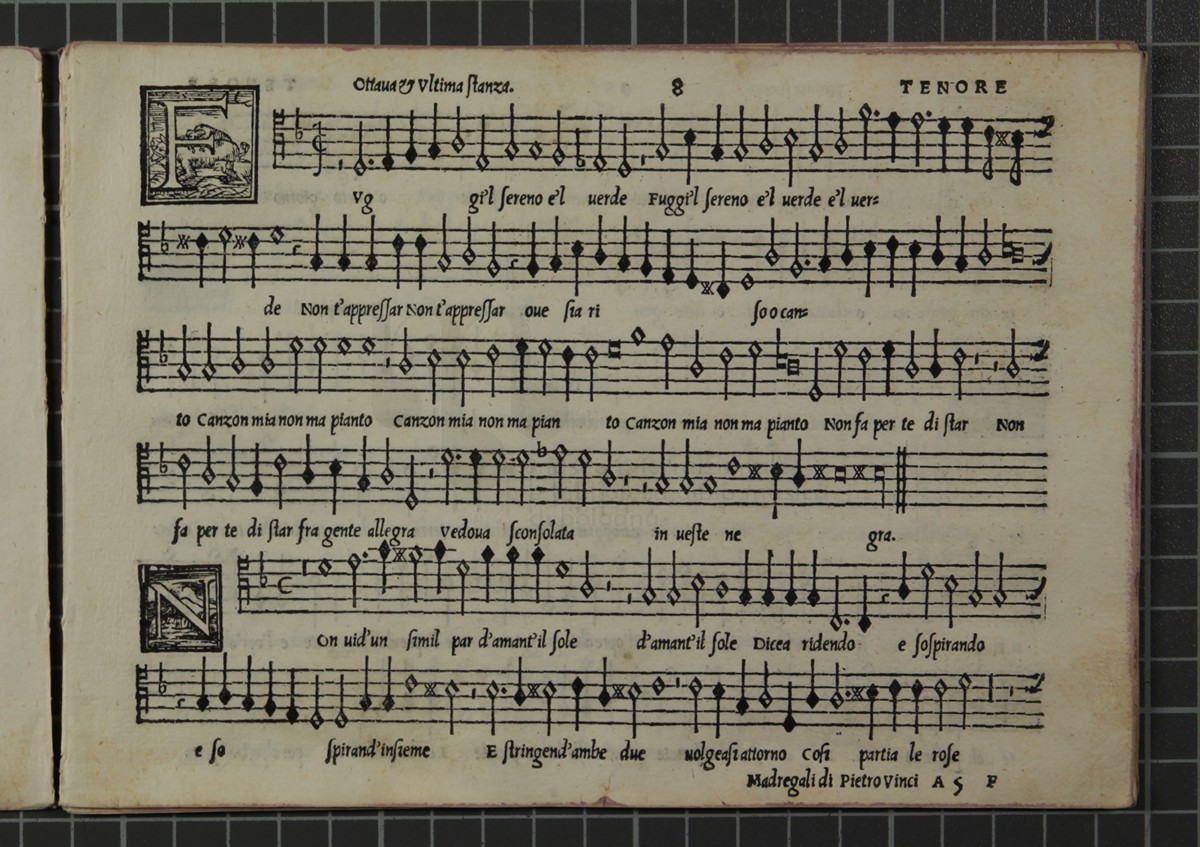 Ottaua & Vltima stanza. 8 TENORE
F Vg gi'l sereno e'l uerde Fuggi'l sereno e'l uerde e'l uer=
de Non t'appressar Non t'appressar oue sia ri so o can=
to Canzon mia non ma pianto Canzon mia non ma pian to Canzon mia non ma pianto Non fa per te di star Non
fa per te di star fra gente allegra Vedoua sconsolata in ueste ne gra.
N On uid'un simil par d'amant'il sole d'amant'il sole Dicea ridendo e sospirando
e so spirand'insieme E stringend'ambe due uolgeasi attorno Cosi partia le rose
Madregali di Pietro Vinci A 5 F